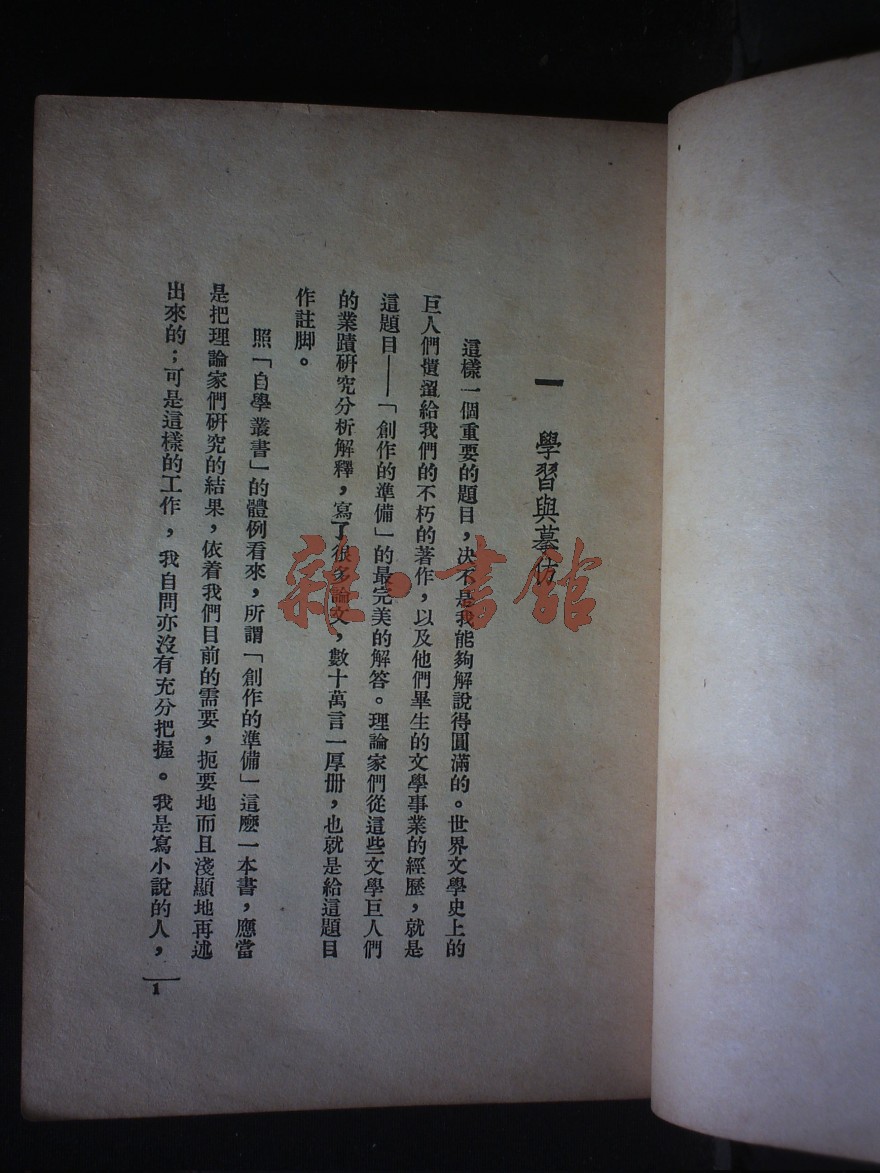 一　學習與摹仿
這樣一個重要的題目，決不是我能夠解說得圓滿的。世界文學史上的
巨人們遺留給我們的不朽的著作，以及他們畢生的文學事業的經歷，就是
這題目——「創作的準備」的最完美的解答。理論家們從這些文學巨人們
的業蹟研究分析解釋，寫了很多論文，數十萬言一厚册，也就是給這題目
作註脚。
照「自學叢書」的體例看來，所謂「創作的準備」這麽一本書，應當
是把理論家們研究的結果，依着我們目前的需要，扼要地而且淺顯地再述
出來的；可是這樣的工作，我自問亦沒有充分把握。我是寫小說的人，
1
雜·書館